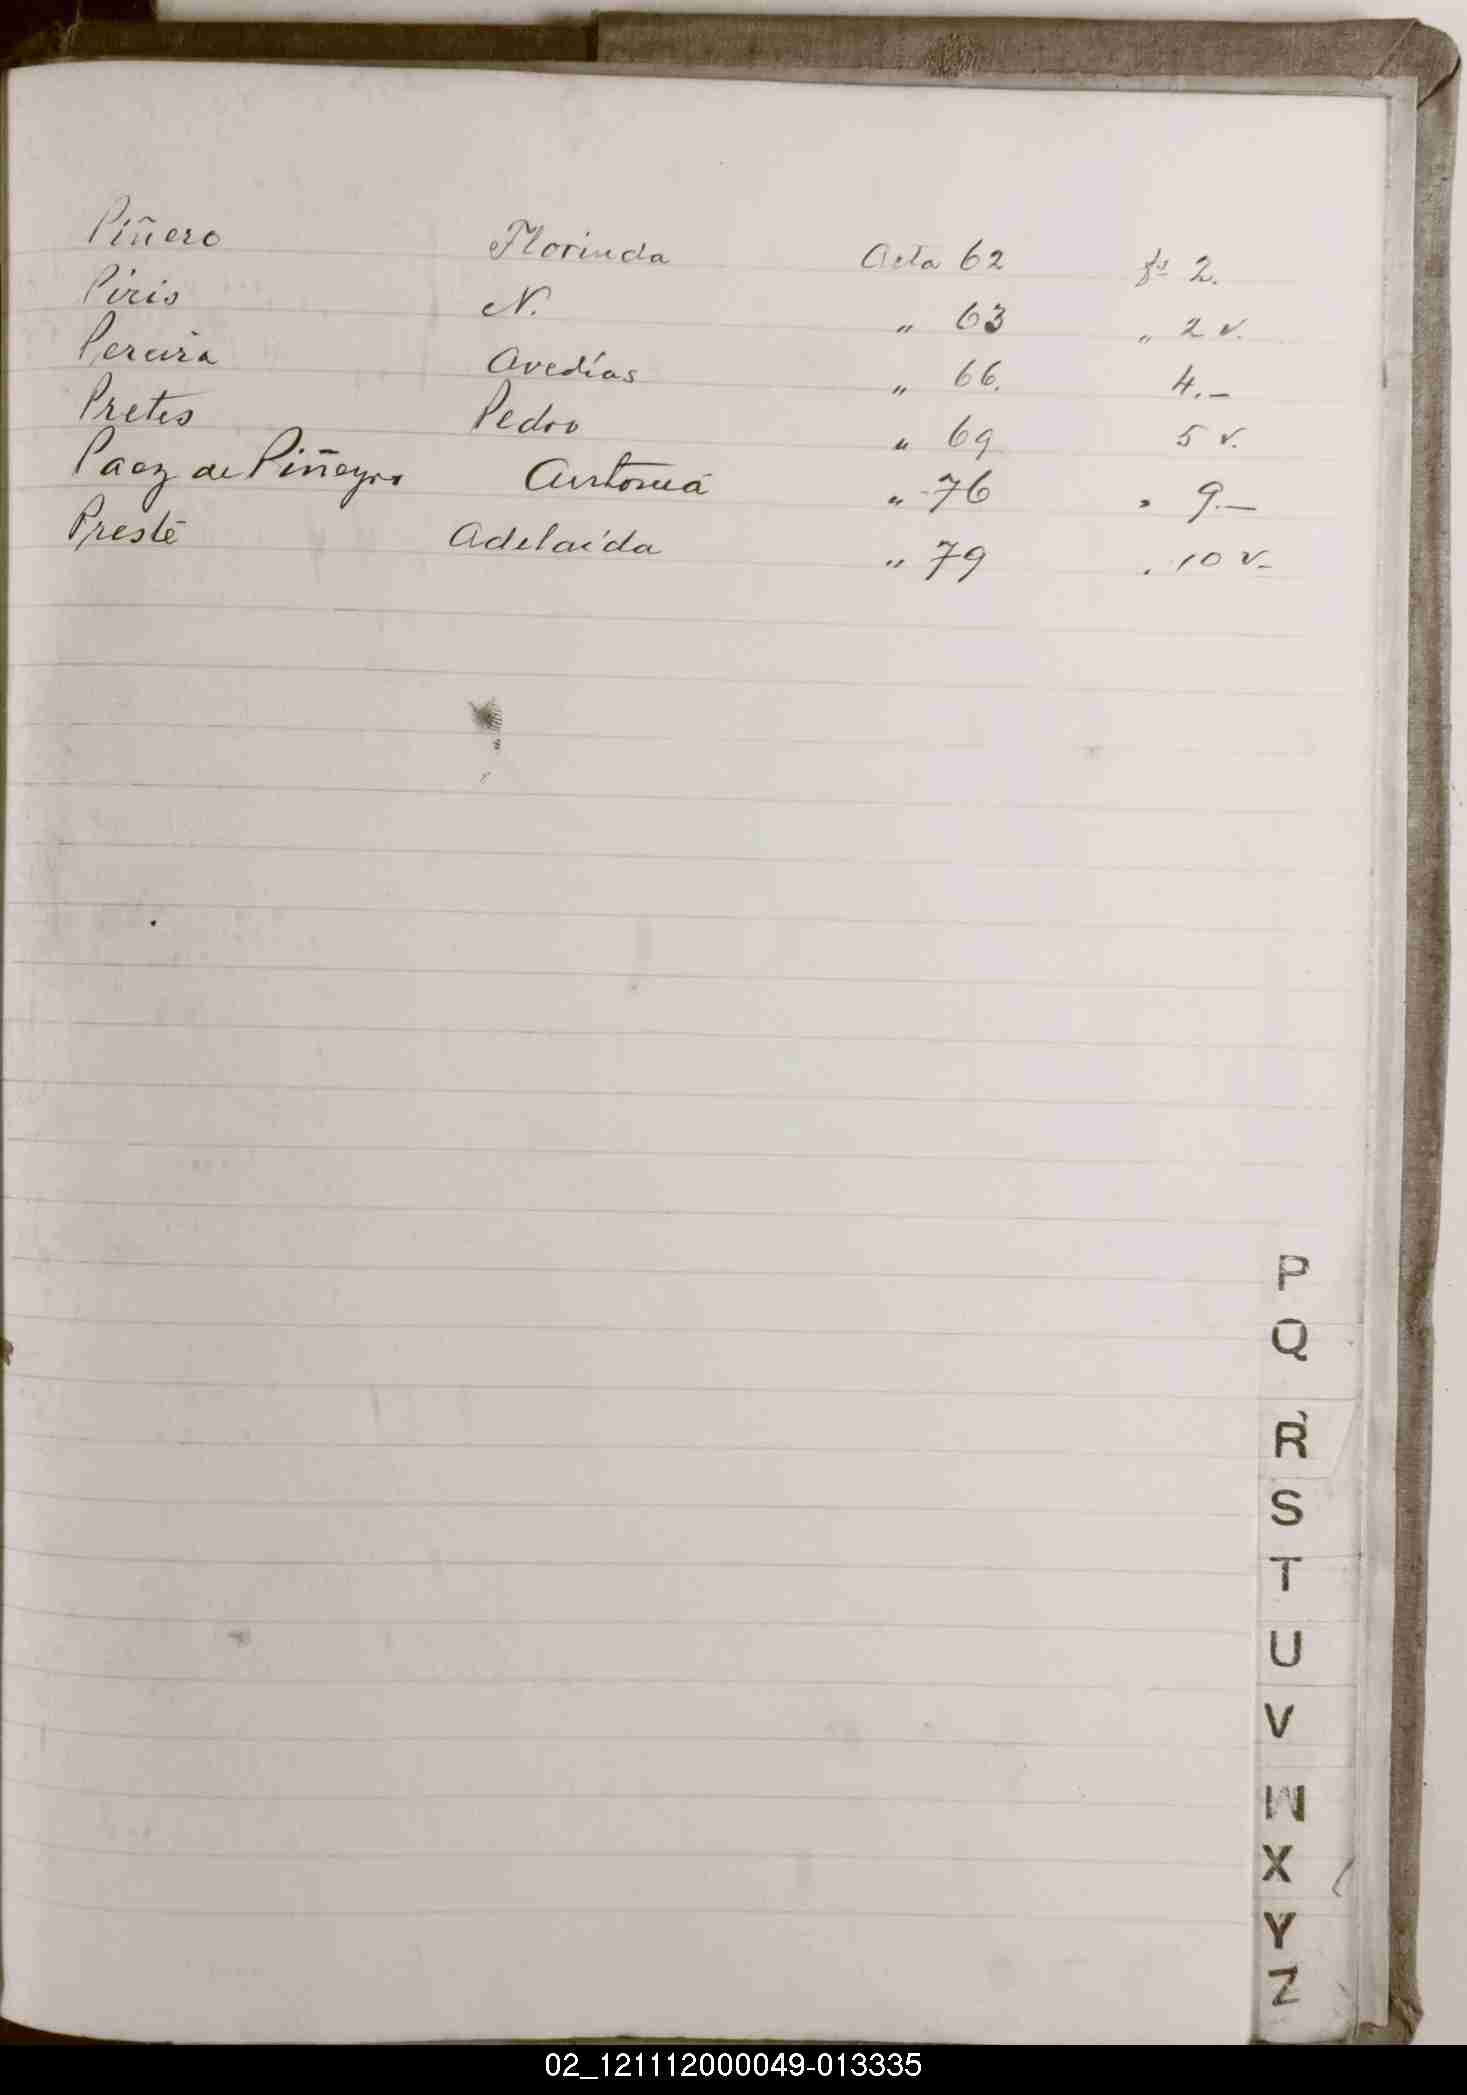 Piñero Florinda Acta 62 fs 2.
Piris N. " 63 " 2 v.
Pereira Avedías " 66. 4.–
Pretes Pedro " 69 5 v.
Paez de Piñeyro Antoniá " 76 " 9.–
Presté Adelaída " 79 . 10 v–
P
Q
R
S
T
U
V
W
X
Y
Z
02_121112000049-013335